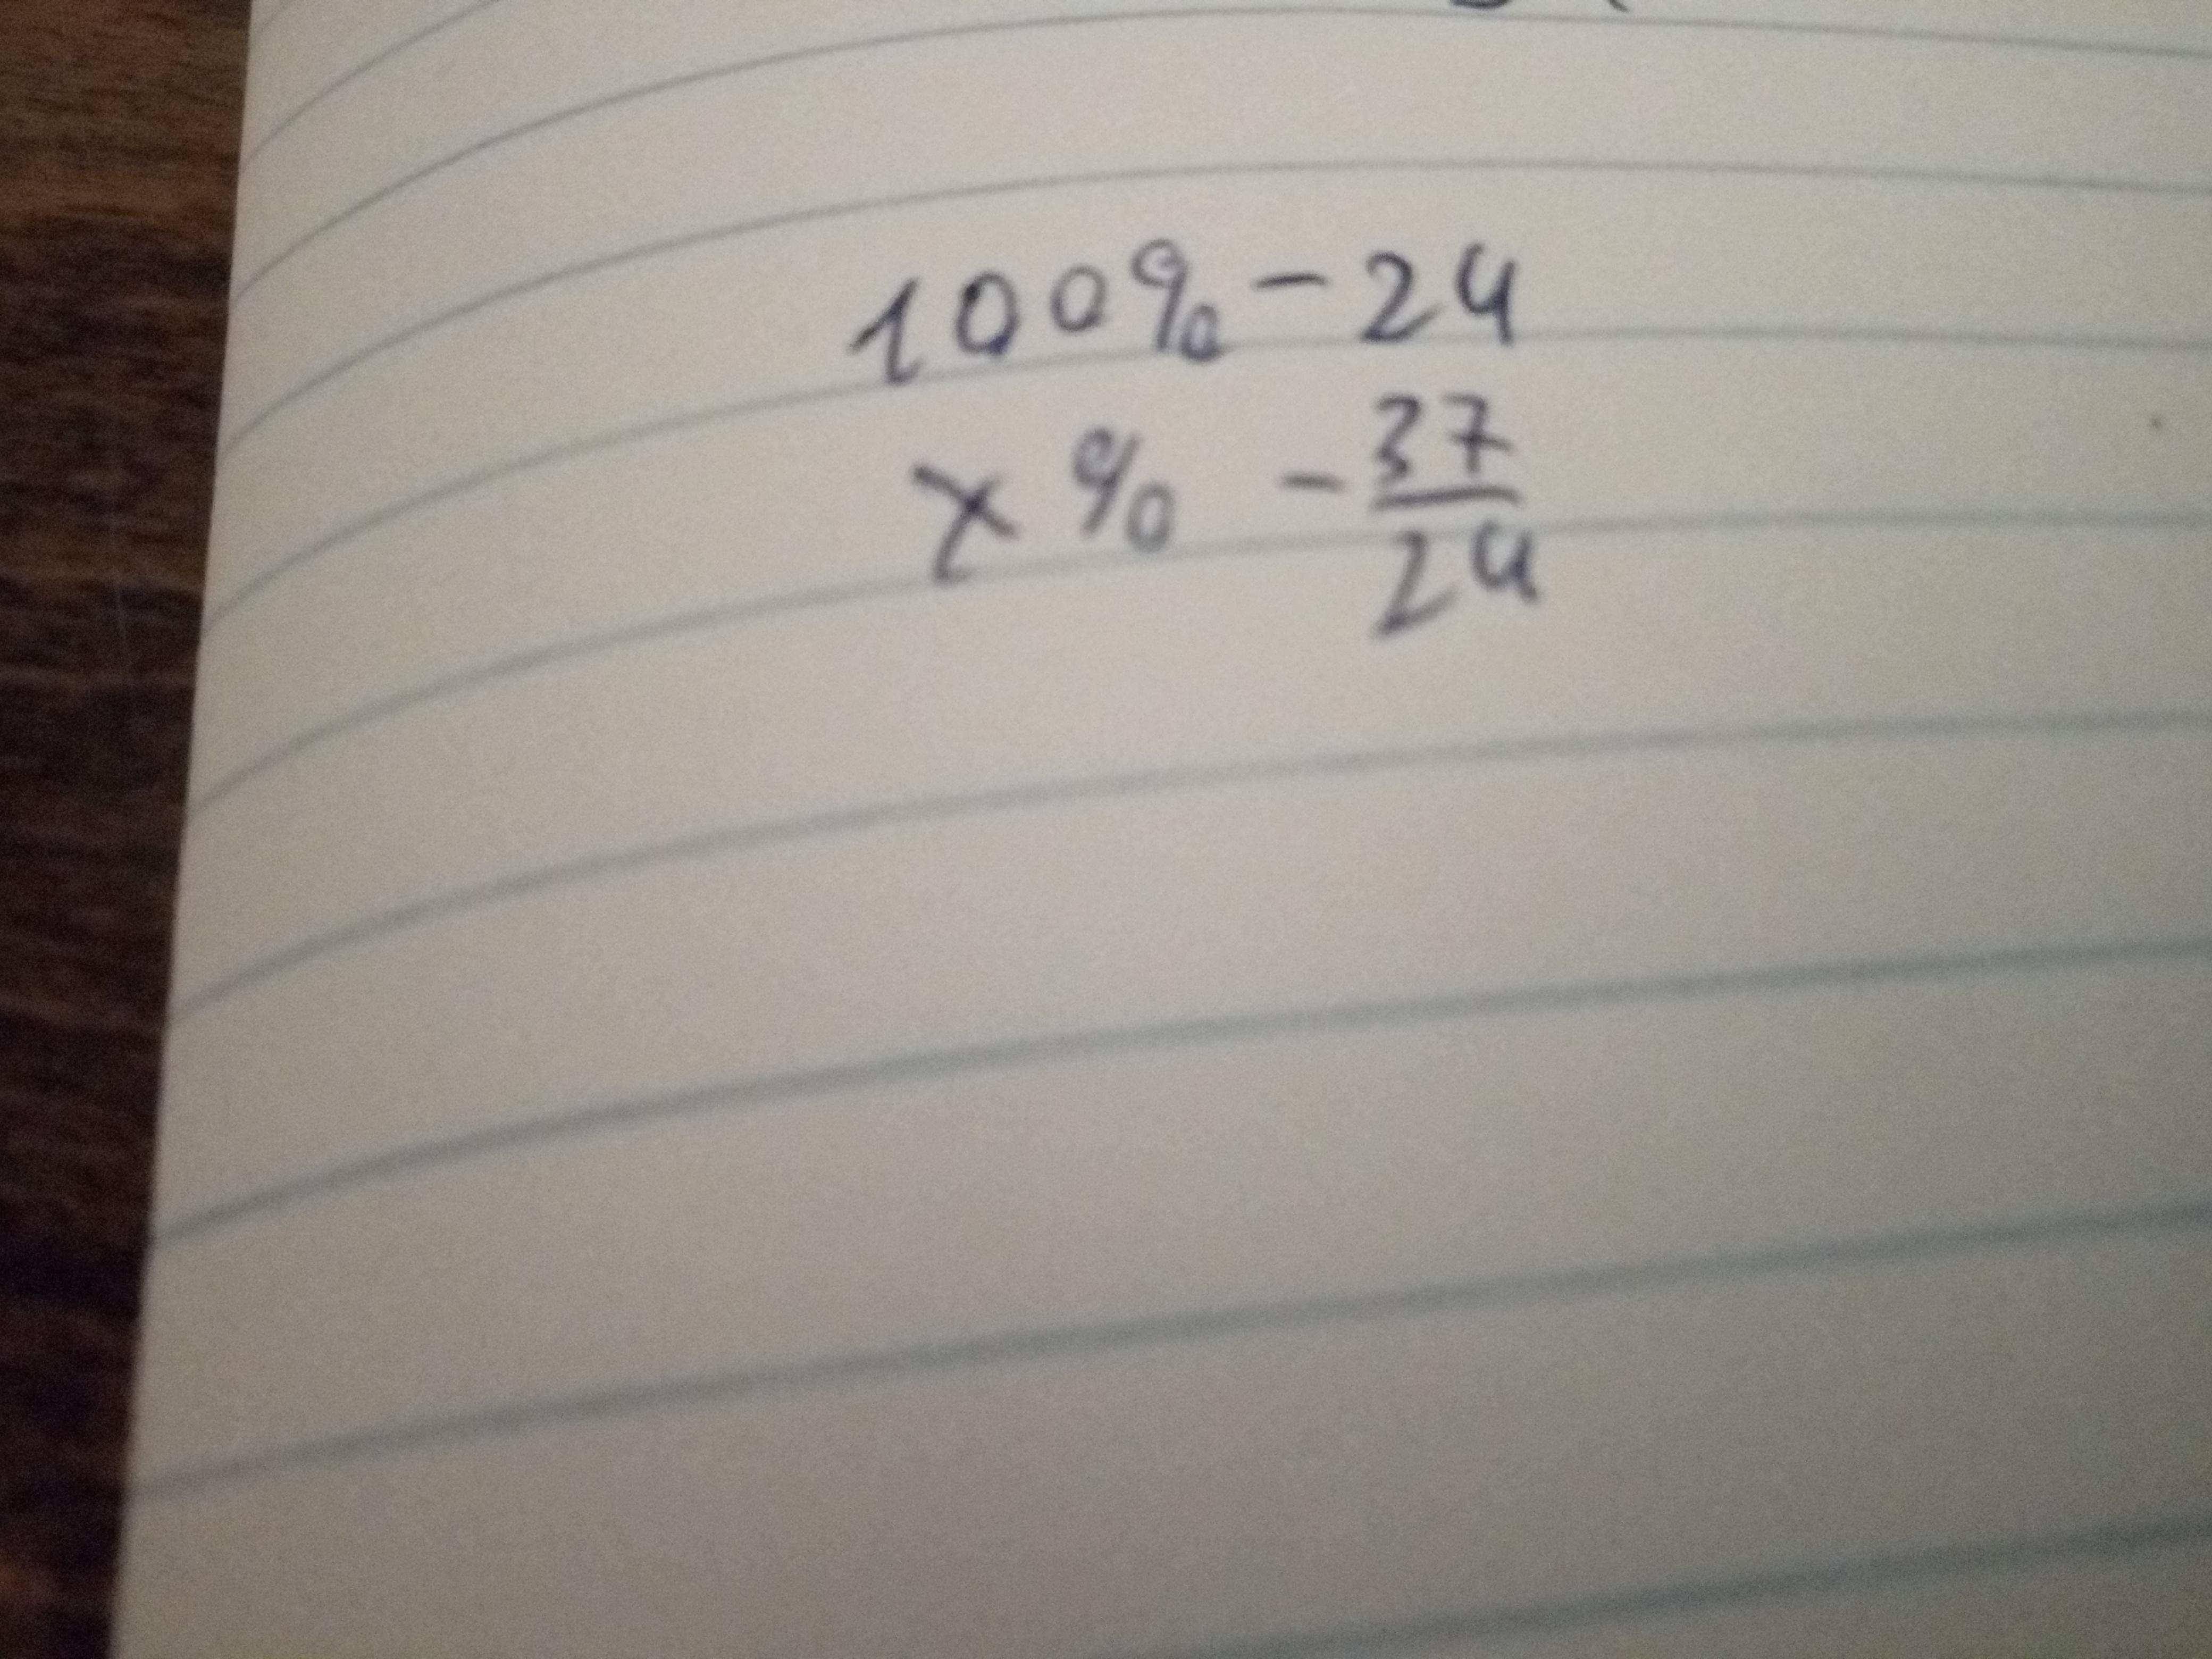 100% - 24
x% - 37/24